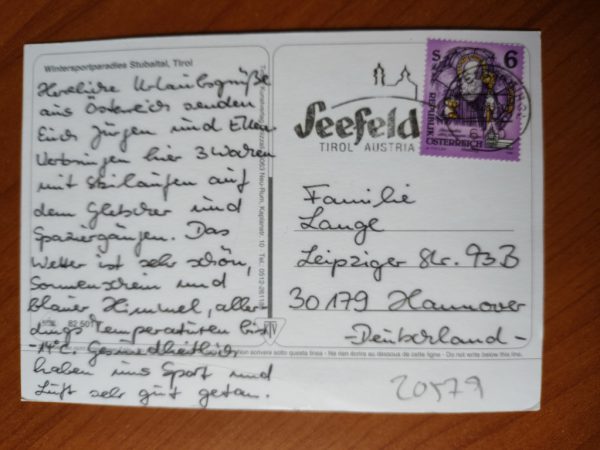 Wintersportparadies Stubaital, Tirol
Herzliche Urlaubsgrüße
aus Österreich senden
Euch Jürgen und Ellen
Verbringen hier 3 Wochen
mit Skilaufen auf
dem Gletscher und
Spaziergängen. Das
Wetter ist sehr schön,
Sonnenschein und
blauer Himmel, aller-
dings Temperaturen bis
-14°C. Gesundheitlich
haben uns Sport und
Luft sehr gut getan.
Neu-Rum, Kaplanstr. 10
Seefeld
TIROL AUSTRIA
S 6
REPUBLIK
ÖSTERREICH
Familie
Lange
Leipziger Str. 93B
30179 Hannover
-Deutschland-
scrivere sotto questa linea - Ne rien écrire au dessous de cette ligne - Do not write below this line.
20579